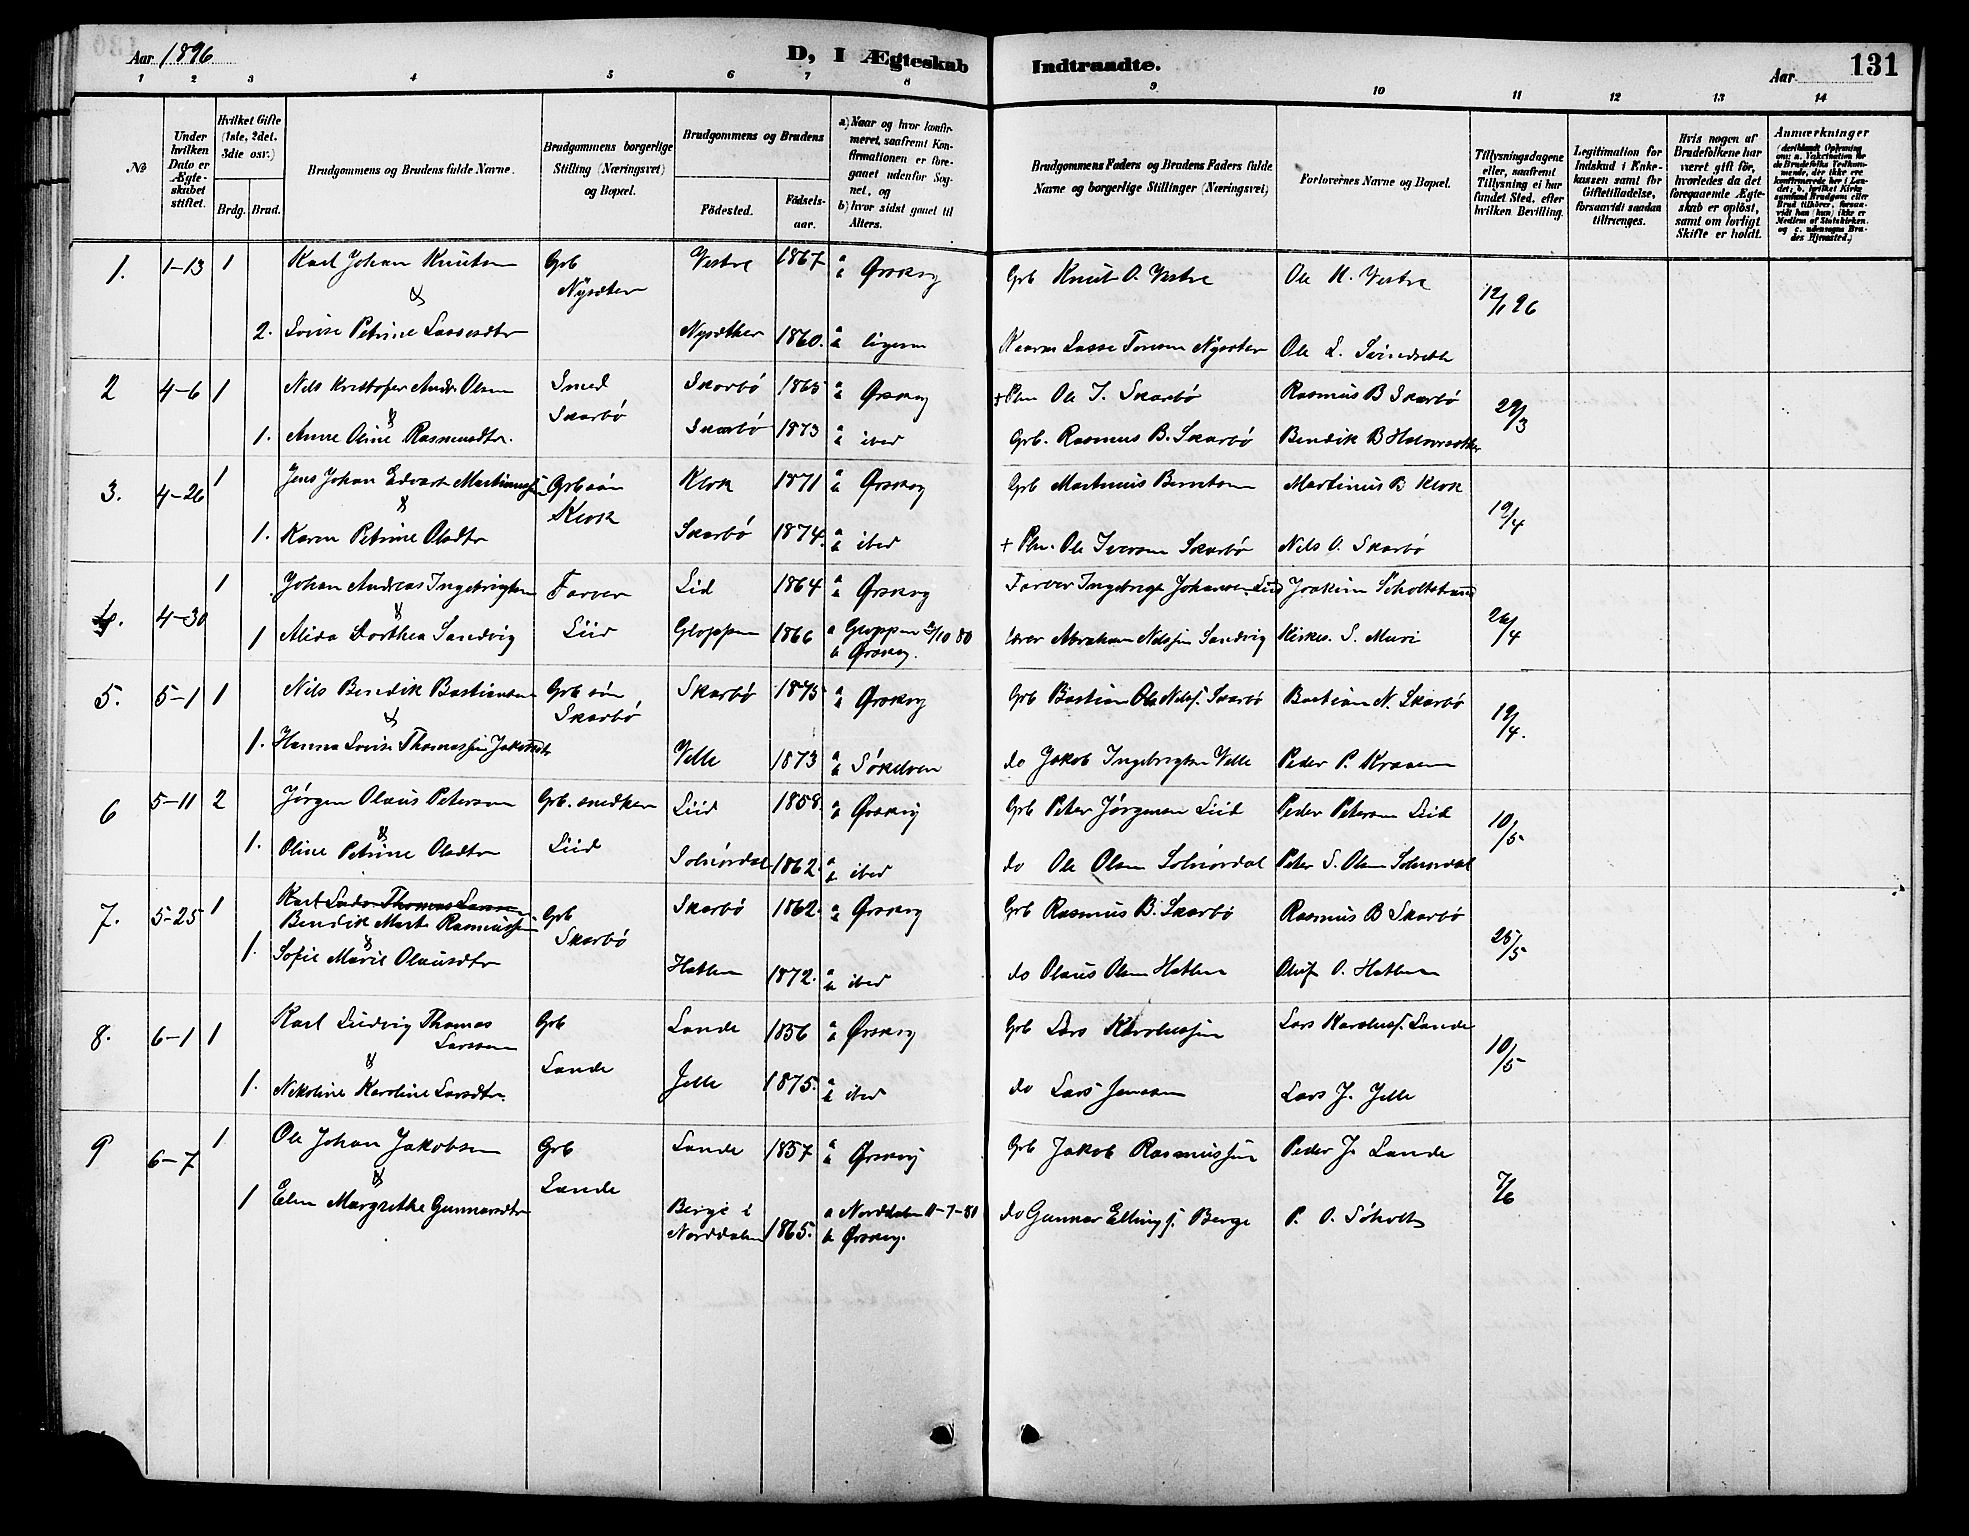 Aar 1896
D, I Ægteskab Indtraadte.
Aar 131
1 2 3 4 5 6 7 8 9 10 11 12 13 14
No
Under hvilken Dato er Ægteskabet stiftet.
Hvilket Gifte (1ste, 2det, 3die osv.)
Brdg. Brud.
Brudgommens og Brudens fulde Navne.
Brudgommens borgerlige Stilling (Næringsvei) og Bopæl.
Brudgommens og Brudens
Fødested. Fødselsaar.
a) Naar og hvor konfirmeret, saafremt Konfirmationen er foregaaet udenfor Sognet, og
b) hvor sidst gaaet til Alters.
Brudgommens Faders og Brudens Faders fulde Navne og borgerlige Stillinger (Næringsvei)
Forlovernes Navne og Bopæl.
Tillysningsdagene eller, saafremt Tillysning ei har fundet Sted, efter hvilken Bevilling.
Legitimation for Indskud i Enkekassen samt for Giftetilladelse, forsaavidt saadan tiltrænges.
Hvis nogen af Brudefolkene har været gift før, hvorledes da det foregaaende Ægteskab er opløst, samt om lovligt Skifte er holdt.
Anmærkninger (deriblandt Oplysning om: a. Vakcination for de Brudefolks Vedkommende, der ikke ere konfirmerede her i Landet; b. hvilket Kirkesamfund Brudgom eller Brud tilhører, forsaavidt han (hun) ikke er Medlem af Statskirken, og c. udensogns Brudes Hjemsted.)
1. 1-13 1 Karl Johan Knutsen Grb Nysæter Vestre 1867 a b Ørskog Grb Knut O. Vestre Ole K. Vestre 12/1 96
&
2. Lovise Petrine Lassesdtr Nysæther 1860. a b ligesaa Lasse Tørresen Nysæter Ole L.
2 4-6 1 Nils Kristofer Andr. Olsen Smed Skarbø Skarbø 1865 a b Ørskog + Pln Ole I. Skarbø Rasmus B Skarbø 29/3
&
1. Anne Oline Rasmusdtr. Skarbø 1873 a b ibid Grb. Rasmus B. Skarbø Bendik B
3. 4-26 1 Jens Johan Edvart Martinussen Grb søn Klok Klok 1871 a b Ørskog Grb Martinus Berntsen Martinus B Klok 19/4
&
1. Karen Petrine Olsdtr Skarbø 1874. a b ibid + Pln. Ole Iversen Skarbø Nils O. Skarbø
4. 4-30 1 Johan Andreas Ingebrigtsen Farver Liid Lid 1864 a b Ørskog Farver Ingebrigt Johansen Liid Joakim Sjoholtstrand 26/4
&
1 Alida Dorthea Sandvig Gloppen 1866 a Gloppen 2/10 80 b Ørskog. Lærer Abraham Nilssen Sandvig Kirkes. S. Muri
5. 5-1 1 Nils Bendik Bastiansen Grb søn Skarbø Skarbø 1875 a b Ørskog Grb Bastian Ole Nilss. Skarbø Bastian N. Skarbø 19/4.
&
1. Hanna Lovise Thomassine Jakobsdtr Velle 1873 a b Søkelven do Jakob Ingebrigtsen Velle Peder P.
6 5-11 2 Jørgen Olaus Petersen Grb. snedker Liid Liid 1858. a b Ørskog Grb Peter Jørgensen Liid Peder Petersen Liid 10/5
&
1. Oline Petrine Olsdtr Solnørdal 1862. a b ibid do Ole Olsen Solnørdal Peter S. Olsen Solnørdal
7. 5-25 1 Karl Ludv. Thomas Larssen
Bendik Mart. Rasmussen Grb Skarbø Skarbø 1862. a b Ørskog Grb Rasmus B. Skarbø Rasmus B Skarbø 25/5
&
1. Sofie Marie Olausdtr Hatlen 1872. a b ibid do Olaus Olsen Hatlen Oluf O. Hatlen
8. 6-1 1 Karl Ludvig Thomas Larssen Grb Lande Lande 1856 a b Ørskog Grb Lars Karolussen Lars Karoluss. Lande 10/5
&
1. Nikoline Karoline Larsdtr. Jelle 1875. a b ibid do Lars Jensen Lars J. Jelle
9 6-7 1 Ole Johan Jakobsen Grb Lande Lande 1857 a b Ørskog Grb Jakob Rasmussen Peder J. Lande 7/6
&
1 Elen Margrethe Gunnarsdtr Berge i Norddalen 1865. a Norddalen 11-7-80 b Ørskog. do Gunnar Ellings. Berge P. O. Søholt